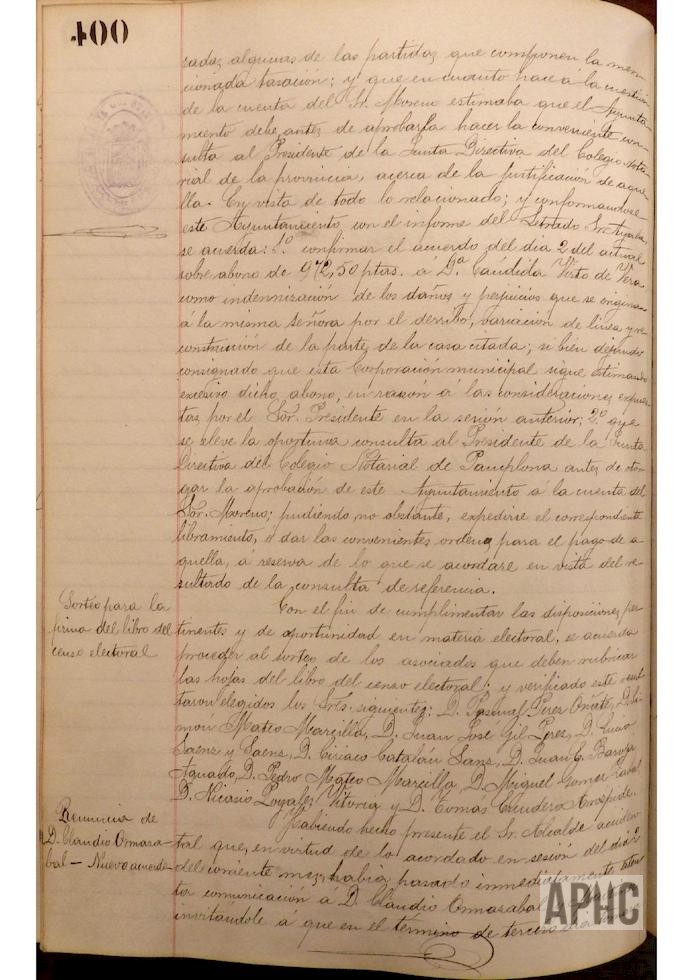 400
radas algunas de las partidas que componen la men-
cionada tasación; y que en cuanto hace á la cuestión
de la cuenta del Sr. Moreno estimaba que el Ayunta-
miento debe antes de aprobarla hacer la conveniente con-
sulta al Presidente de la Junta Directiva del Colegio Nota-
rial de la provincia, acerca de la justificación de aque-
lla. En vista de todo lo relacionado; y conformandose
este Ayuntamiento con el informe del Letrado Sr.
se acuerda: 1º confirmar el acuerdo del dia 2 del actual
sobre abono de 972,50 ptas. á Dª Cándida Visto de Vera
como indemnización de los daños y perjuicios que se originan
á la misma Señora por el derribo, variacion de linea y re
construcción de la parte de la casa citada; si bien dejando
consignado que esta Corporación municipal sigue estimando
excesivo dicho abono, en razón á las consideraciones expues-
tas por el Sor. Presidente en la sesión anterior; 2º que
se eleve la oportuna consulta al Presidente de la Junta
Directiva del Colegio Notarial de Pamplona antes de otor-
gar la aprobación de este Ayuntamiento á la cuenta del
Sor. Moreno; pudiendo no obstante, expedirse el correspondiente
libramiento, ó dar las convenientes ordenes para el pago de a
quella, á reserva de lo que se acordare en vista del re
sultado de la consulta de referencia.
Sorteo para la
firma del libro del
censo electoral
Con el fin de cumplimentar las disposiciones per-
tinentes y de oportunidad en materia electoral, se acuerda
proceder al sorteo de los asociados que deben rubricar
las hojas del libro del censo electoral; y verificado este resul
taron elegidos los Sres. siguientes: D. Pascual Perez Oñate, D. Si-
món Mateo Marcilla, D. Juan José Gil Perez, D. Lucio
Saenz y Saenz, D. Ciriaco Catalán Sanz, D. Juan C. Baroja
Aguado, D. Pedro Mateo Marcilla, D. Miguel Goma
D. Nicasio Poyales Vitoria y D. Tomas Cundero
Renuncia de
D. Claudio Ormaza-
bal - Nuevo acuerdo
Habiendo hecho presente el Sr. Alcalde acciden
tal que, en virtud de lo acordado en sesión del dia 2
del corriente mes, habia pasado inmediatamente
comunicación á D. Claudio Ormazabal
invitándole á que en el término de tercero
APHC